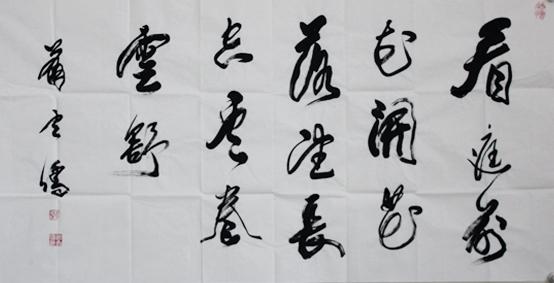 看庭前
花開花
落望長
空雲卷
雲舒
萧云儒